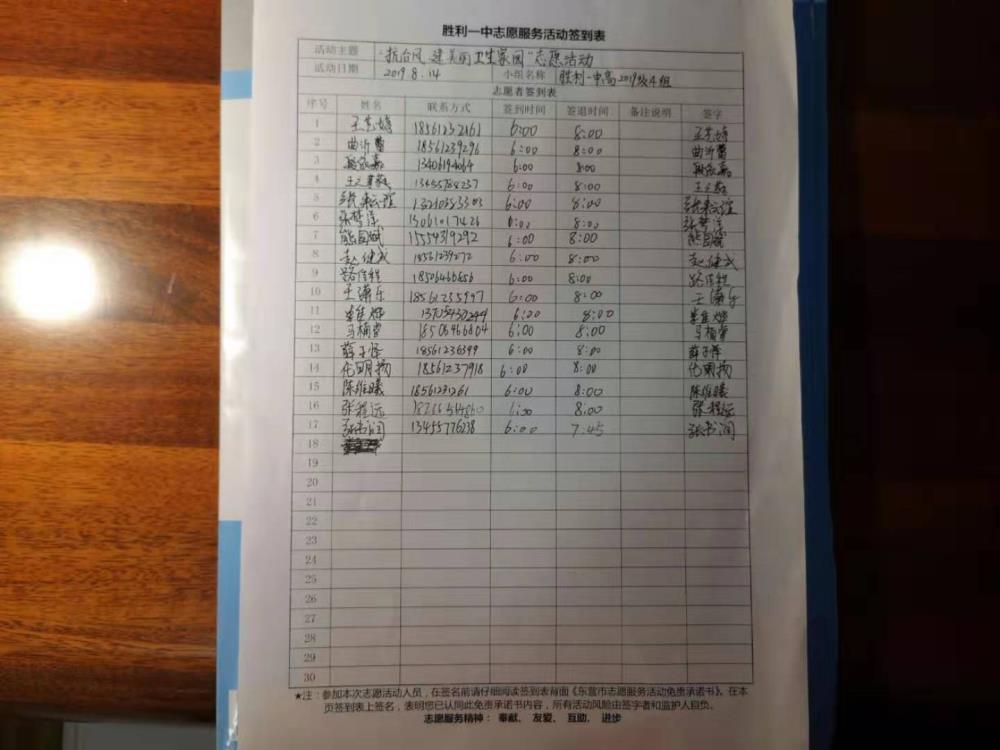 胜利一中志愿服务活动签到表
活动主题 "抗台风 建美丽卫生家园"志愿活动
活动日期 2019.8.14 小组名称 胜利一中高2019级4组
志愿者签到表
序号 姓名 联系方式 签到时间 签退时间 备注说明 签字
1 18561232161 6:00 8:00
2 曲沂蕾 18561239296 6:00 8:00 曲沂蕾
3 13406194064 6:00 8:00
4 13455788237 6:00 8:00
5 13210383303 6:00 8:00
6 张梦洋 15061017426 6:00 8:00 张梦洋
7 熊国斌 15554319292 6:00 8:00 熊国斌
8 赵健成 18561239272 6:00 8:00 赵健成
9 路佳程 18506466656 6:00 8:00 路佳程
10 王潇乐 18561235997 6:00 8:00 王潇乐
11 6:00 8:00
12 马楠 18506466804 6:00 8:00 马楠
13 薛子怿 18561236399 6:00 8:00 薛子怿
14 化明扬 18561237918 6:00 8:00 化明扬
15 陈维曦 18561231261 6:00 8:00 陈维曦
16 张程远 8:00 张程远
17 张书润 13455776238 6:00 7:45 张书润
18
19
20
21
22
23
24
25
26
27
28
29
30
★注：参加本次志愿活动人员，在签名前请仔细阅读签到表背面《东营市志愿服务活动免责承诺书》。在本
页签到表上签名，表明您已认同此免责承诺书内容，所有活动风险由签字者和监护人自负。
志愿服务精神： 奉献、 友爱、 互助、 进步